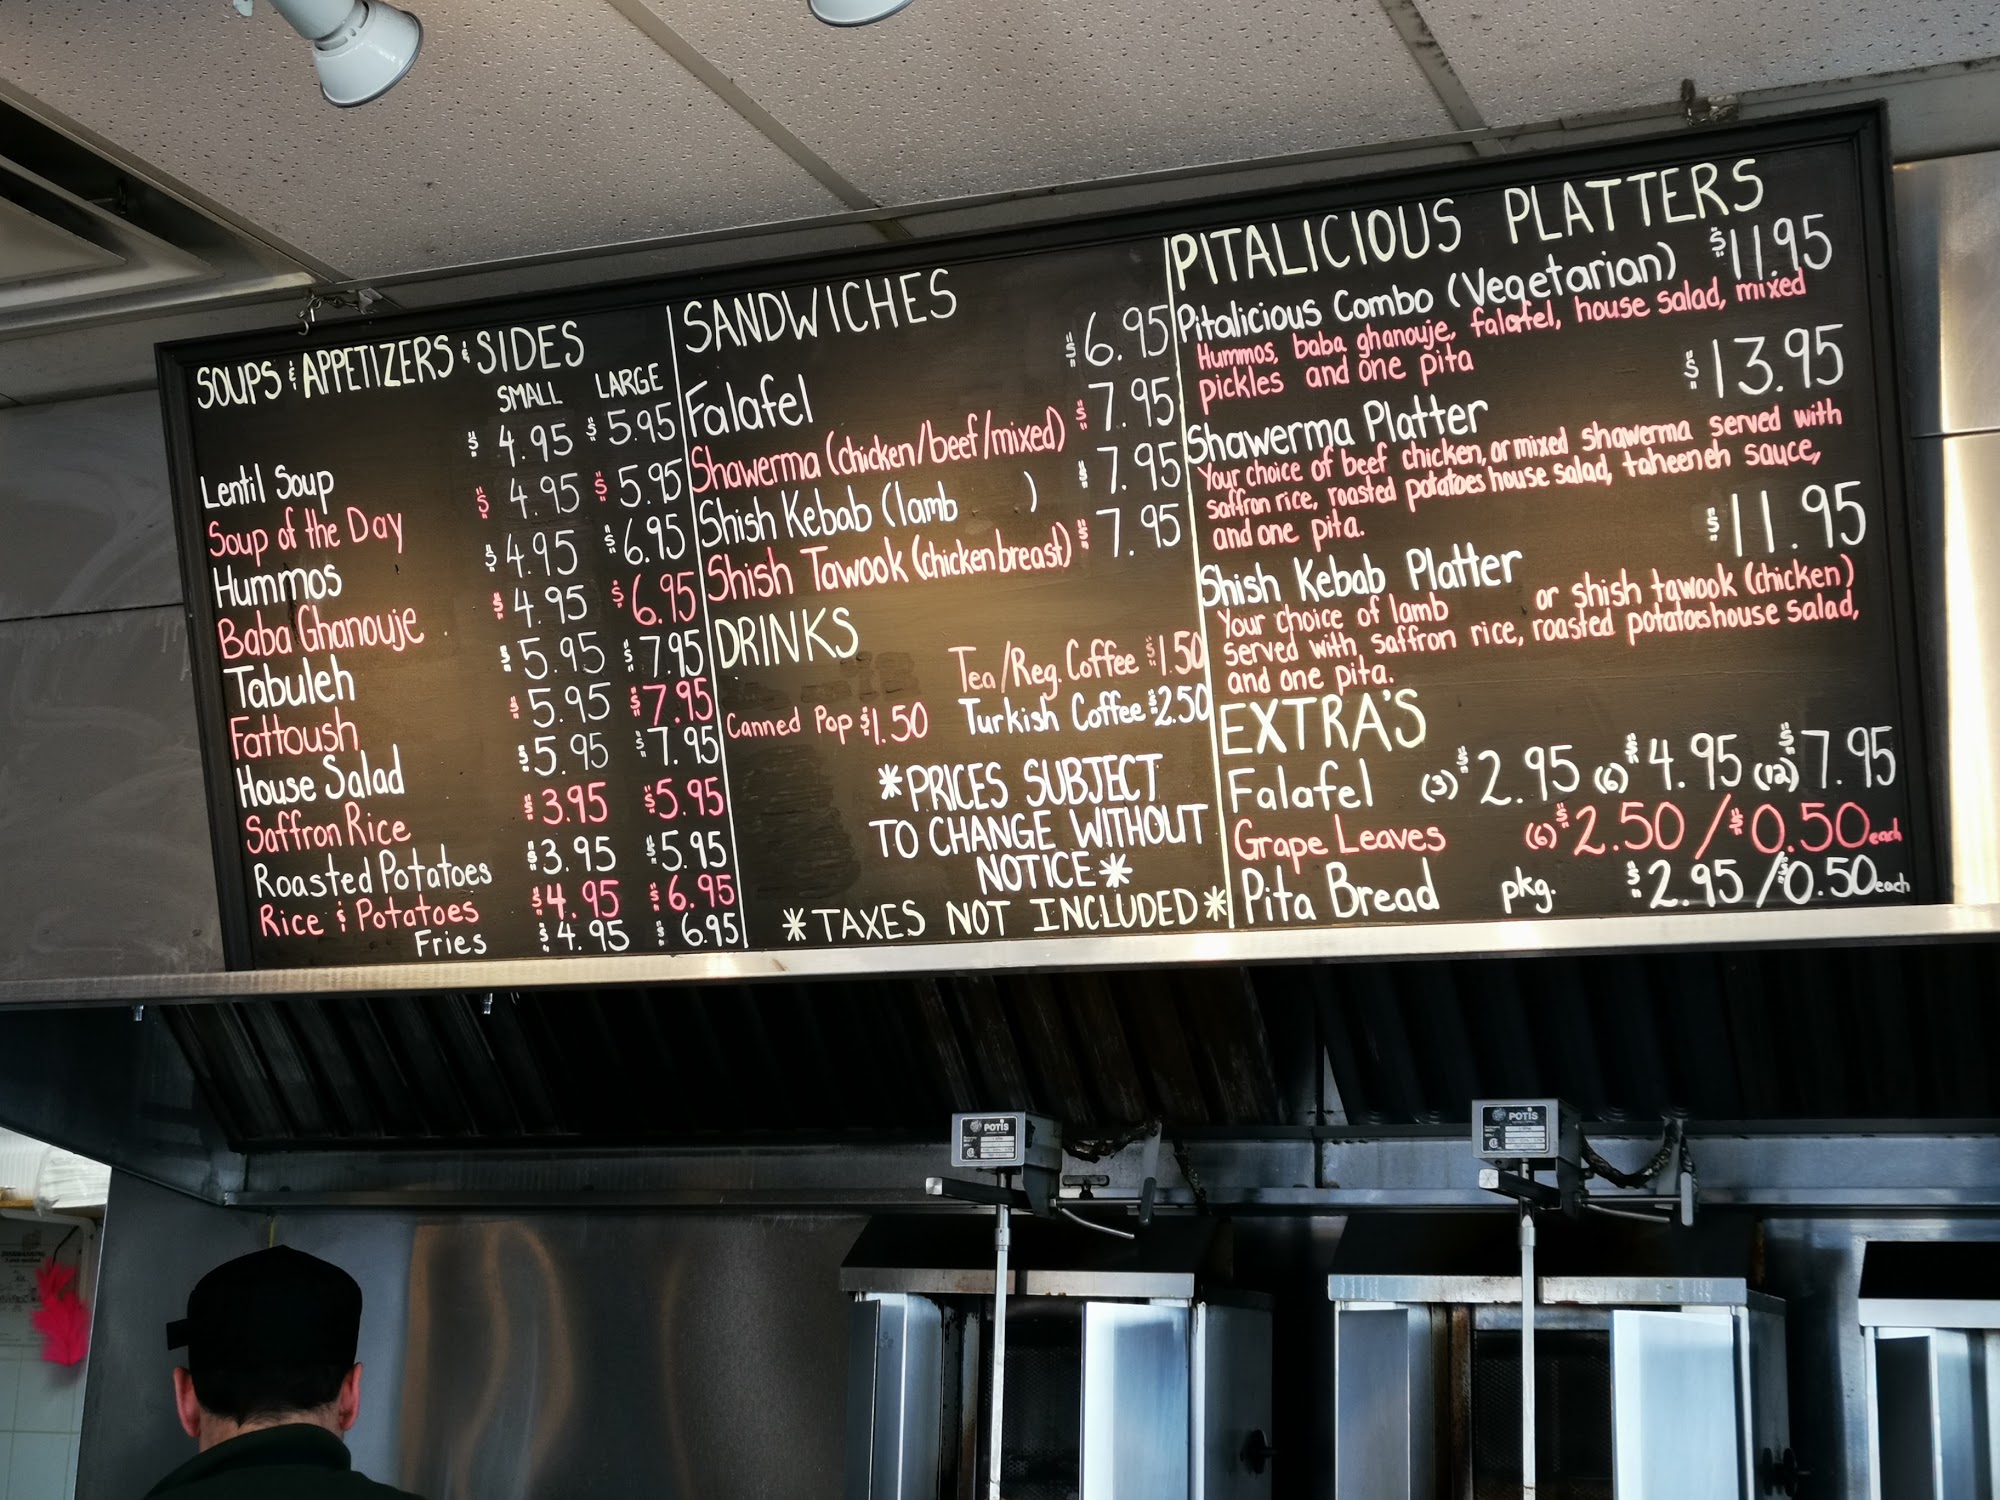 SOUPS & APPETIZERS & SIDES
SMALL LARGE
Lentil Soup $4.95 $5.95
Soup of the Day $4.95 $5.95
Hummos $4.95 $6.95
Baba Ghanouje $4.95 $6.95
Tabuleh $5.95 $7.95
Fattoush $5.95 $7.95
House Salad $5.95 $7.95
Saffron Rice $3.95 $5.95
Roasted Potatoes $3.95 $5.95
Rice & Potatoes $4.95 $6.95
Fries $4.95 $6.95
SANDWICHES
Falafel $6.95
Shawerma (chicken/beef/mixed) $7.95
Shish Kebab (lamb ) $7.95
Shish Tawook (chicken breast) $7.95
DRINKS
Tea/Reg. Coffee $1.50
Canned Pop $1.50 Turkish Coffee $2.50
*PRICES SUBJECT
TO CHANGE WITHOUT
NOTICE*
*TAXES NOT INCLUDED*
PITALICIOUS PLATTERS
Pitalicious Combo (Vegetarian) $11.95
Hummos, baba ghanouje, falafel, house salad, mixed
pickles and one pita
Shawerma Platter $13.95
Your choice of beef, chicken, or mixed shawerma served with
saffron rice, roasted potatoes house salad, taheeneh sauce,
and one pita.
Shish Kebab Platter $11.95
Your choice of lamb or shish tawook (chicken)
served with, saffron rice, roasted potatoes house salad,
and one pita.
EXTRA'S
Falafel (3) $2.95 (6) $4.95 (12) $7.95
Grape Leaves (6) $2.50 / $0.50 each
Pita Bread pkg. $2.95 / $0.50 each
POTIS
POTIS